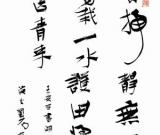 掃靜無
栽一水護田
送青來
王安石書湖